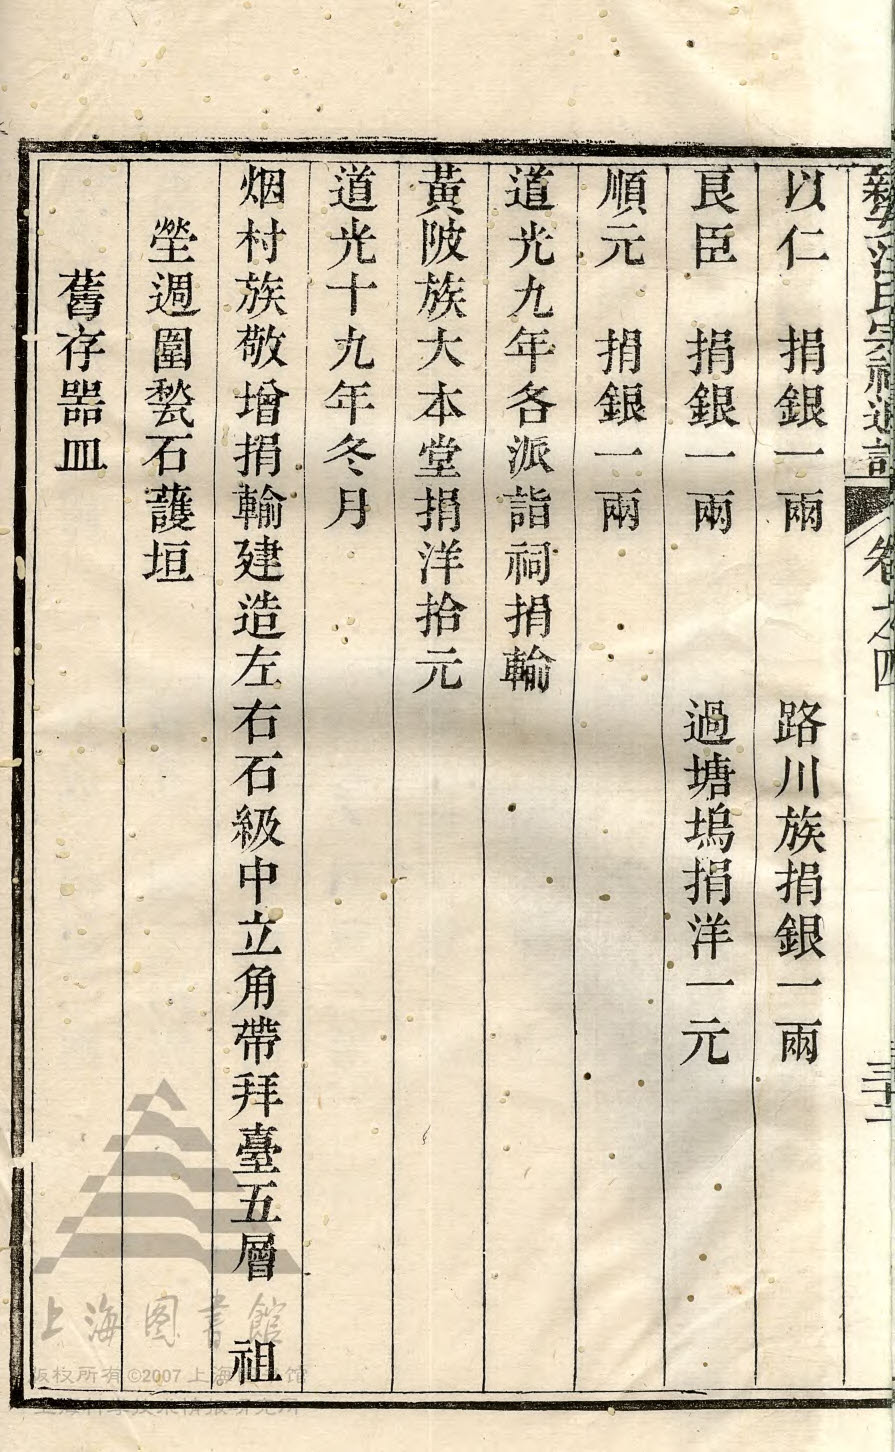 新安汪氏宗祠通譜 卷之四 三十二
以仁 捐銀一兩 路川族捐銀一兩
良臣 捐銀一兩 過塘塢捐洋一元
順元 捐銀一兩
道光九年各派詣祠捐輸
黃陂族大本堂捐洋拾元
道光十九年冬月
烟村族敬增捐輸建造左右石級中立角帶拜臺五層 祖
塋週圍甃石護垣
舊存器皿
上海图書館
版权所有©2007上海图书馆
上海科学技术情报研究所